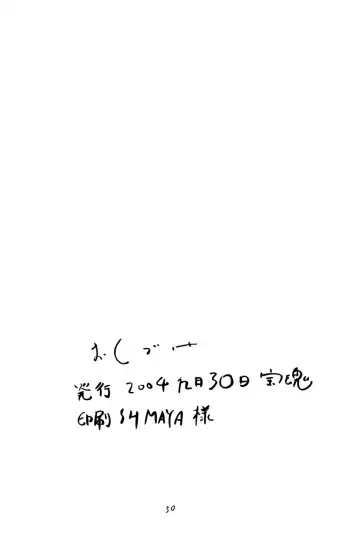 おくづけ
発行 2004 九月30日 宝魂
印刷 SHIMAYA 様
30